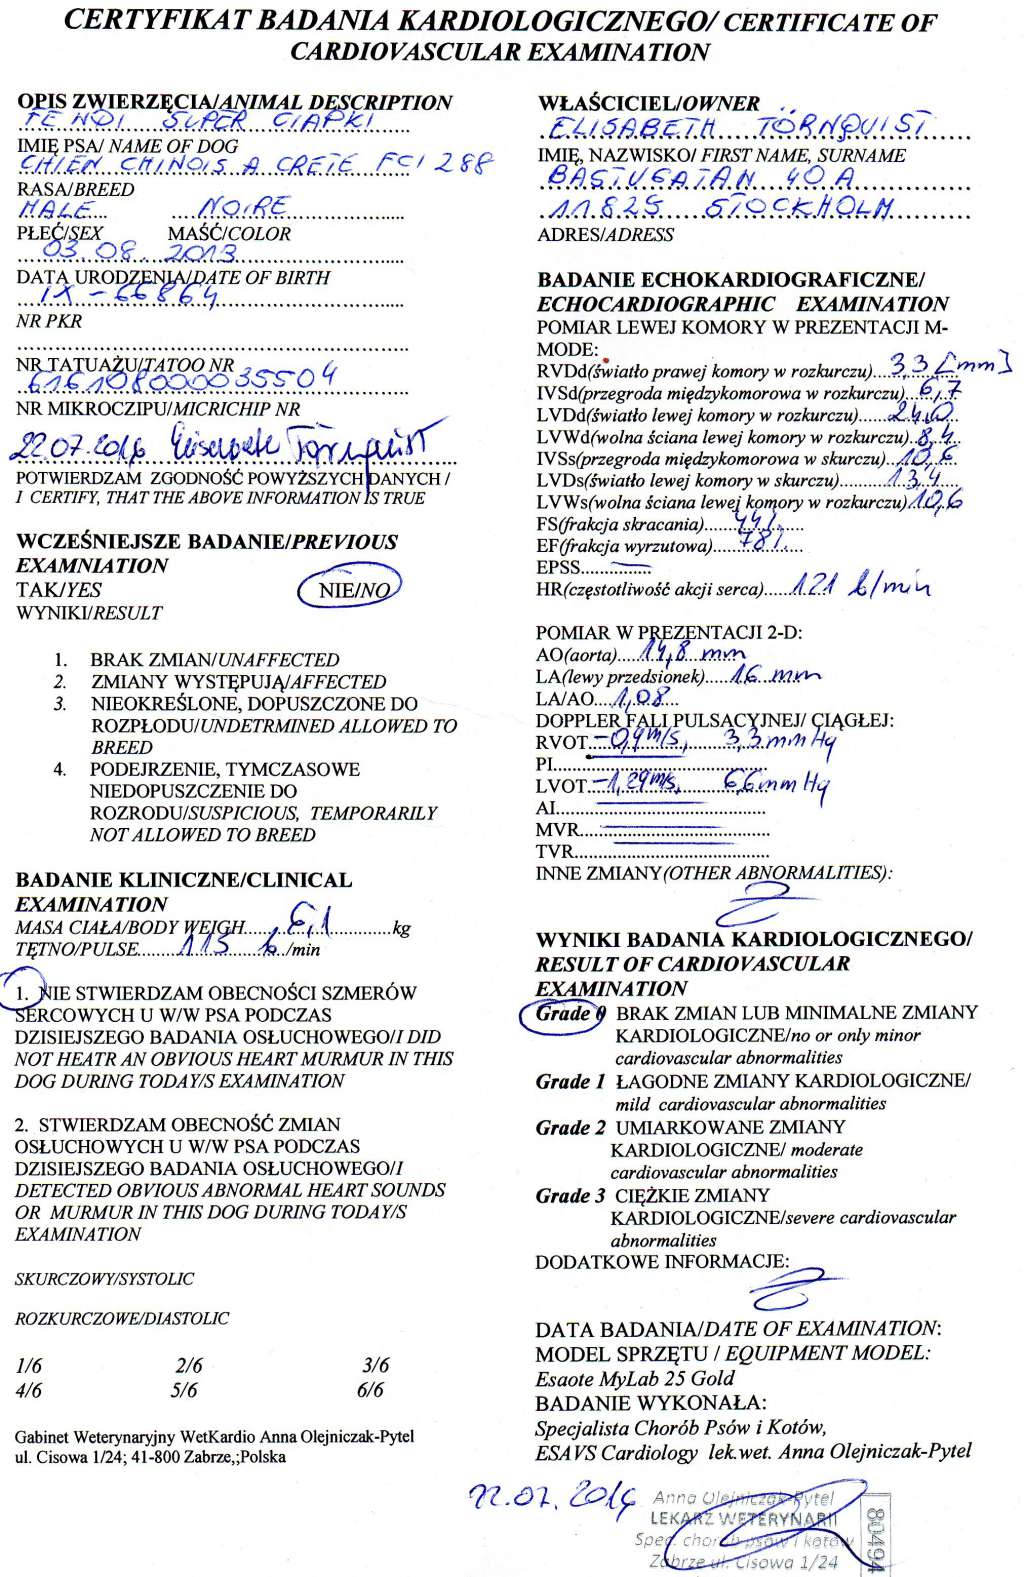 CERTYFIKAT BADANIA KARDIOLOGICZNEGO/ CERTIFICATE OF
CARDIOVASCULAR EXAMINATION
OPIS ZWIERZĘCIA/ANIMAL DESCRIPTION
FENDI SUPER CIAPKI
IMIĘ PSA/ NAME OF DOG
CHIEN CHINOIS A CRETE FCI 288
RASA/BREED
MALE NOIRE
PŁEĆ/SEX MAŚĆ/COLOR
03 08. 2013
DATA URODZENIA/DATE OF BIRTH
IX - 66864
NR PKR
NR TATUAŻU/TATOO NR
616108000035504
NR MIKROCZIPU/MICRICHIP NR
22.07.2016 Elisabeth Törnquist
POTWIERDZAM ZGODNOŚĆ POWYŻSZYCH DANYCH /
I CERTIFY, THAT THE ABOVE INFORMATION IS TRUE
WCZEŚNIEJSZE BADANIE/PREVIOUS
EXAMNIATION
TAK/YES NIE/NO
WYNIKI/RESULT
1. BRAK ZMIAN/UNAFFECTED
2. ZMIANY WYSTĘPUJĄ/AFFECTED
3. NIEOKREŚLONE, DOPUSZCZONE DO
ROZPŁODU/UNDETRMINED ALLOWED TO
BREED
4. PODEJRZENIE, TYMCZASOWE
NIEDOPUSZCZENIE DO
ROZRODU/SUSPICIOUS, TEMPORARILY
NOT ALLOWED TO BREED
BADANIE KLINICZNE/CLINICAL
EXAMINATION
MASA CIAŁA/BODY WEIGH...6,1...kg
TĘTNO/PULSE...115 b./min
1. NIE STWIERDZAM OBECNOŚCI SZMERÓW
SERCOWYCH U W/W PSA PODCZAS
DZISIEJSZEGO BADANIA OSŁUCHOWEGO/I DID
NOT HEATR AN OBVIOUS HEART MURMUR IN THIS
DOG DURING TODAY/S EXAMINATION
2. STWIERDZAM OBECNOŚĆ ZMIAN
OSŁUCHOWYCH U W/W PSA PODCZAS
DZISIEJSZEGO BADANIA OSŁUCHOWEGO/I
DETECTED OBVIOUS ABNORMAL HEART SOUNDS
OR MURMUR IN THIS DOG DURING TODAY/S
EXAMINATION
SKURCZOWY/SYSTOLIC
ROZKURCZOWE/DIASTOLIC
1/6 2/6 3/6
4/6 5/6 6/6
Gabinet Weterynaryjny WetKardio Anna Olejniczak-Pytel
ul. Cisowa 1/24; 41-800 Zabrze,;Polska
WŁAŚCICIEL/OWNER
ELISABETH TÖRNQUIST
IMIĘ, NAZWISKO/ FIRST NAME, SURNAME
BASTUGATAN 40A
11825 STOCKHOLM
ADRES/ADRESS
BADANIE ECHOKARDIOGRAFICZNE/
ECHOCARDIOGRAPHIC EXAMINATION
POMIAR LEWEJ KOMORY W PREZENTACJI M-
MODE:
RVDd(światło prawej komory w rozkurczu)....3,3 [mm]
IVSd(przegroda międzykomorowa w rozkurczu)..6,7
LVDd(światło lewej komory w rozkurczu)......24,0
LVWd(wolna ściana lewej komory w rozkurczu)..8,4
IVSs(przegroda międzykomorowa w skurczu)...10,6
LVDs(światło lewej komory w skurczu)..........13,4
LVWs(wolna ściana lewej komory w rozkurczu).10,6
FS(frakcja skracania)......44%
EF(frakcja wyrzutowa).....78%
EPSS..............
HR(częstotliwość akcji serca)......121 b/min
POMIAR W PREZENTACJI 2-D:
AO(aorta).....14,8 mm
LA(lewy przedsionek).....16 mm
LA/AO....1,08
DOPPLER FALI PULSACYJNEJ/ CIĄGŁEJ:
RVOT -0,9m/s, 3,3 mmHg
PI
LVOT -1,29m/s 6,6mmHg
AI
MVR
TVR
INNE ZMIANY(OTHER ABNORMALITIES):
WYNIKI BADANIA KARDIOLOGICZNEGO/
RESULT OF CARDIOVASCULAR
EXAMINATION
Grade 0 BRAK ZMIAN LUB MINIMALNE ZMIANY
KARDIOLOGICZNE/no or only minor
cardiovascular abnormalities
Grade 1 ŁAGODNE ZMIANY KARDIOLOGICZNE/
mild cardiovascular abnormalities
Grade 2 UMIARKOWANE ZMIANY
KARDIOLOGICZNE/ moderate
cardiovascular abnormalities
Grade 3 CIĘŻKIE ZMIANY
KARDIOLOGICZNE/severe cardiovascular
abnormalities
DODATKOWE INFORMACJE:
DATA BADANIA/DATE OF EXAMINATION:
MODEL SPRZĘTU / EQUIPMENT MODEL:
Esaote MyLab 25 Gold
BADANIE WYKONAŁA:
Specjalista Chorób Psów i Kotów,
ESAVS Cardiology lek.wet. Anna Olejniczak-Pytel
22.07.2016
Anna Olejniczak-Pytel
LEKARZ WETERYNARII
Spec. chorób psów i kotów
Zabrze ul. Cisowa 1/24
80494